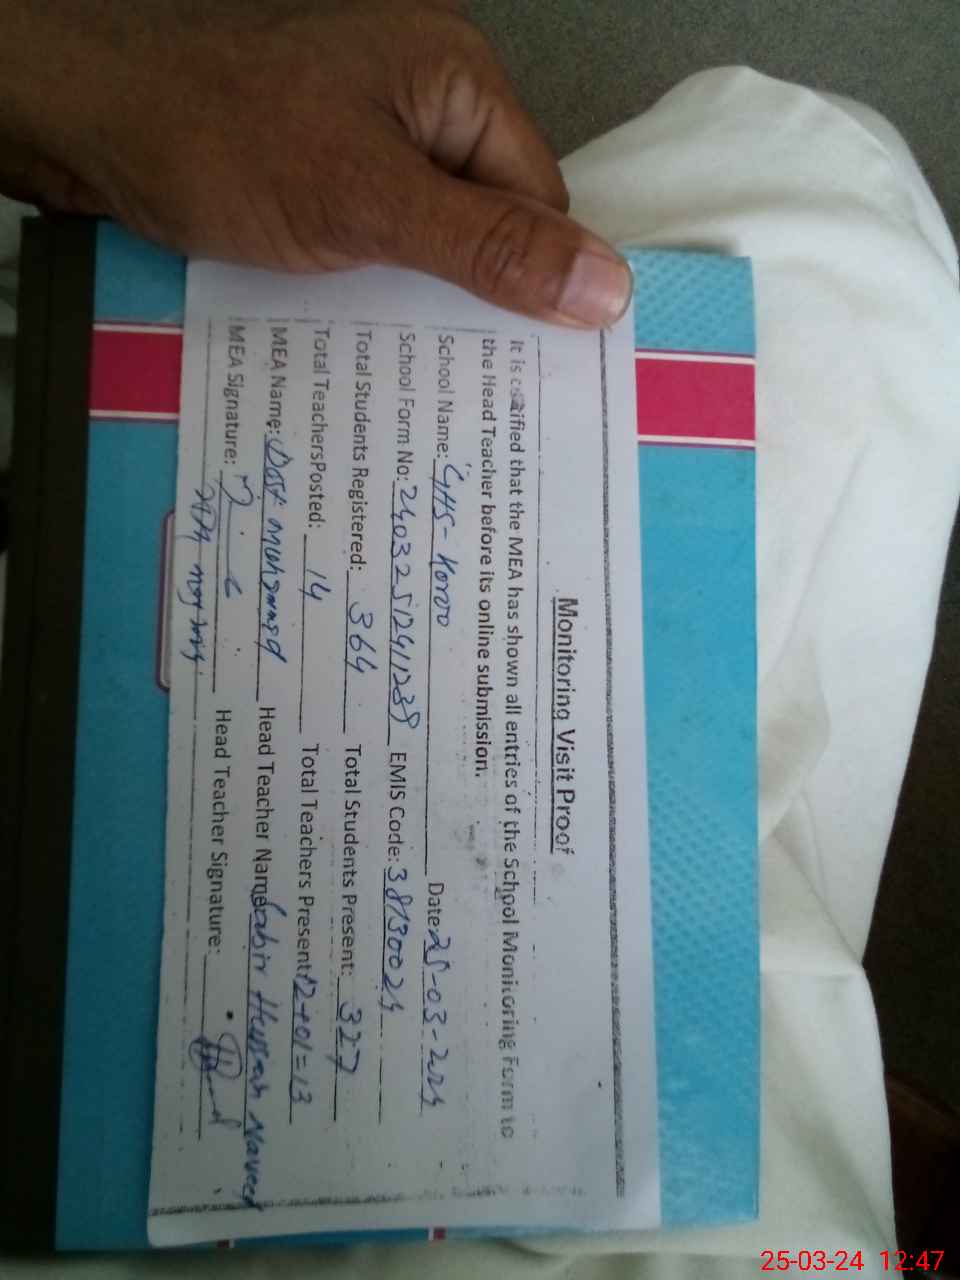 Monitoring Visit Proof
It is certified that the MEA has shown all entries of the School Monitoring Form to
the Head Teacher before its online submission.
School Name: GHS - Koroo Date: 25-03-2024
School Form No: EMIS Code: 38130024
Total Students Registered: 364 Total Students Present: 327
Total TeachersPosted: 14 Total Teachers Present: 12+01=13
MEA Name: Dost Muhammad Head Teacher Name: Sabir Hussain Naveed
MEA Signature: Head Teacher Signature:
25-03-24 12:47